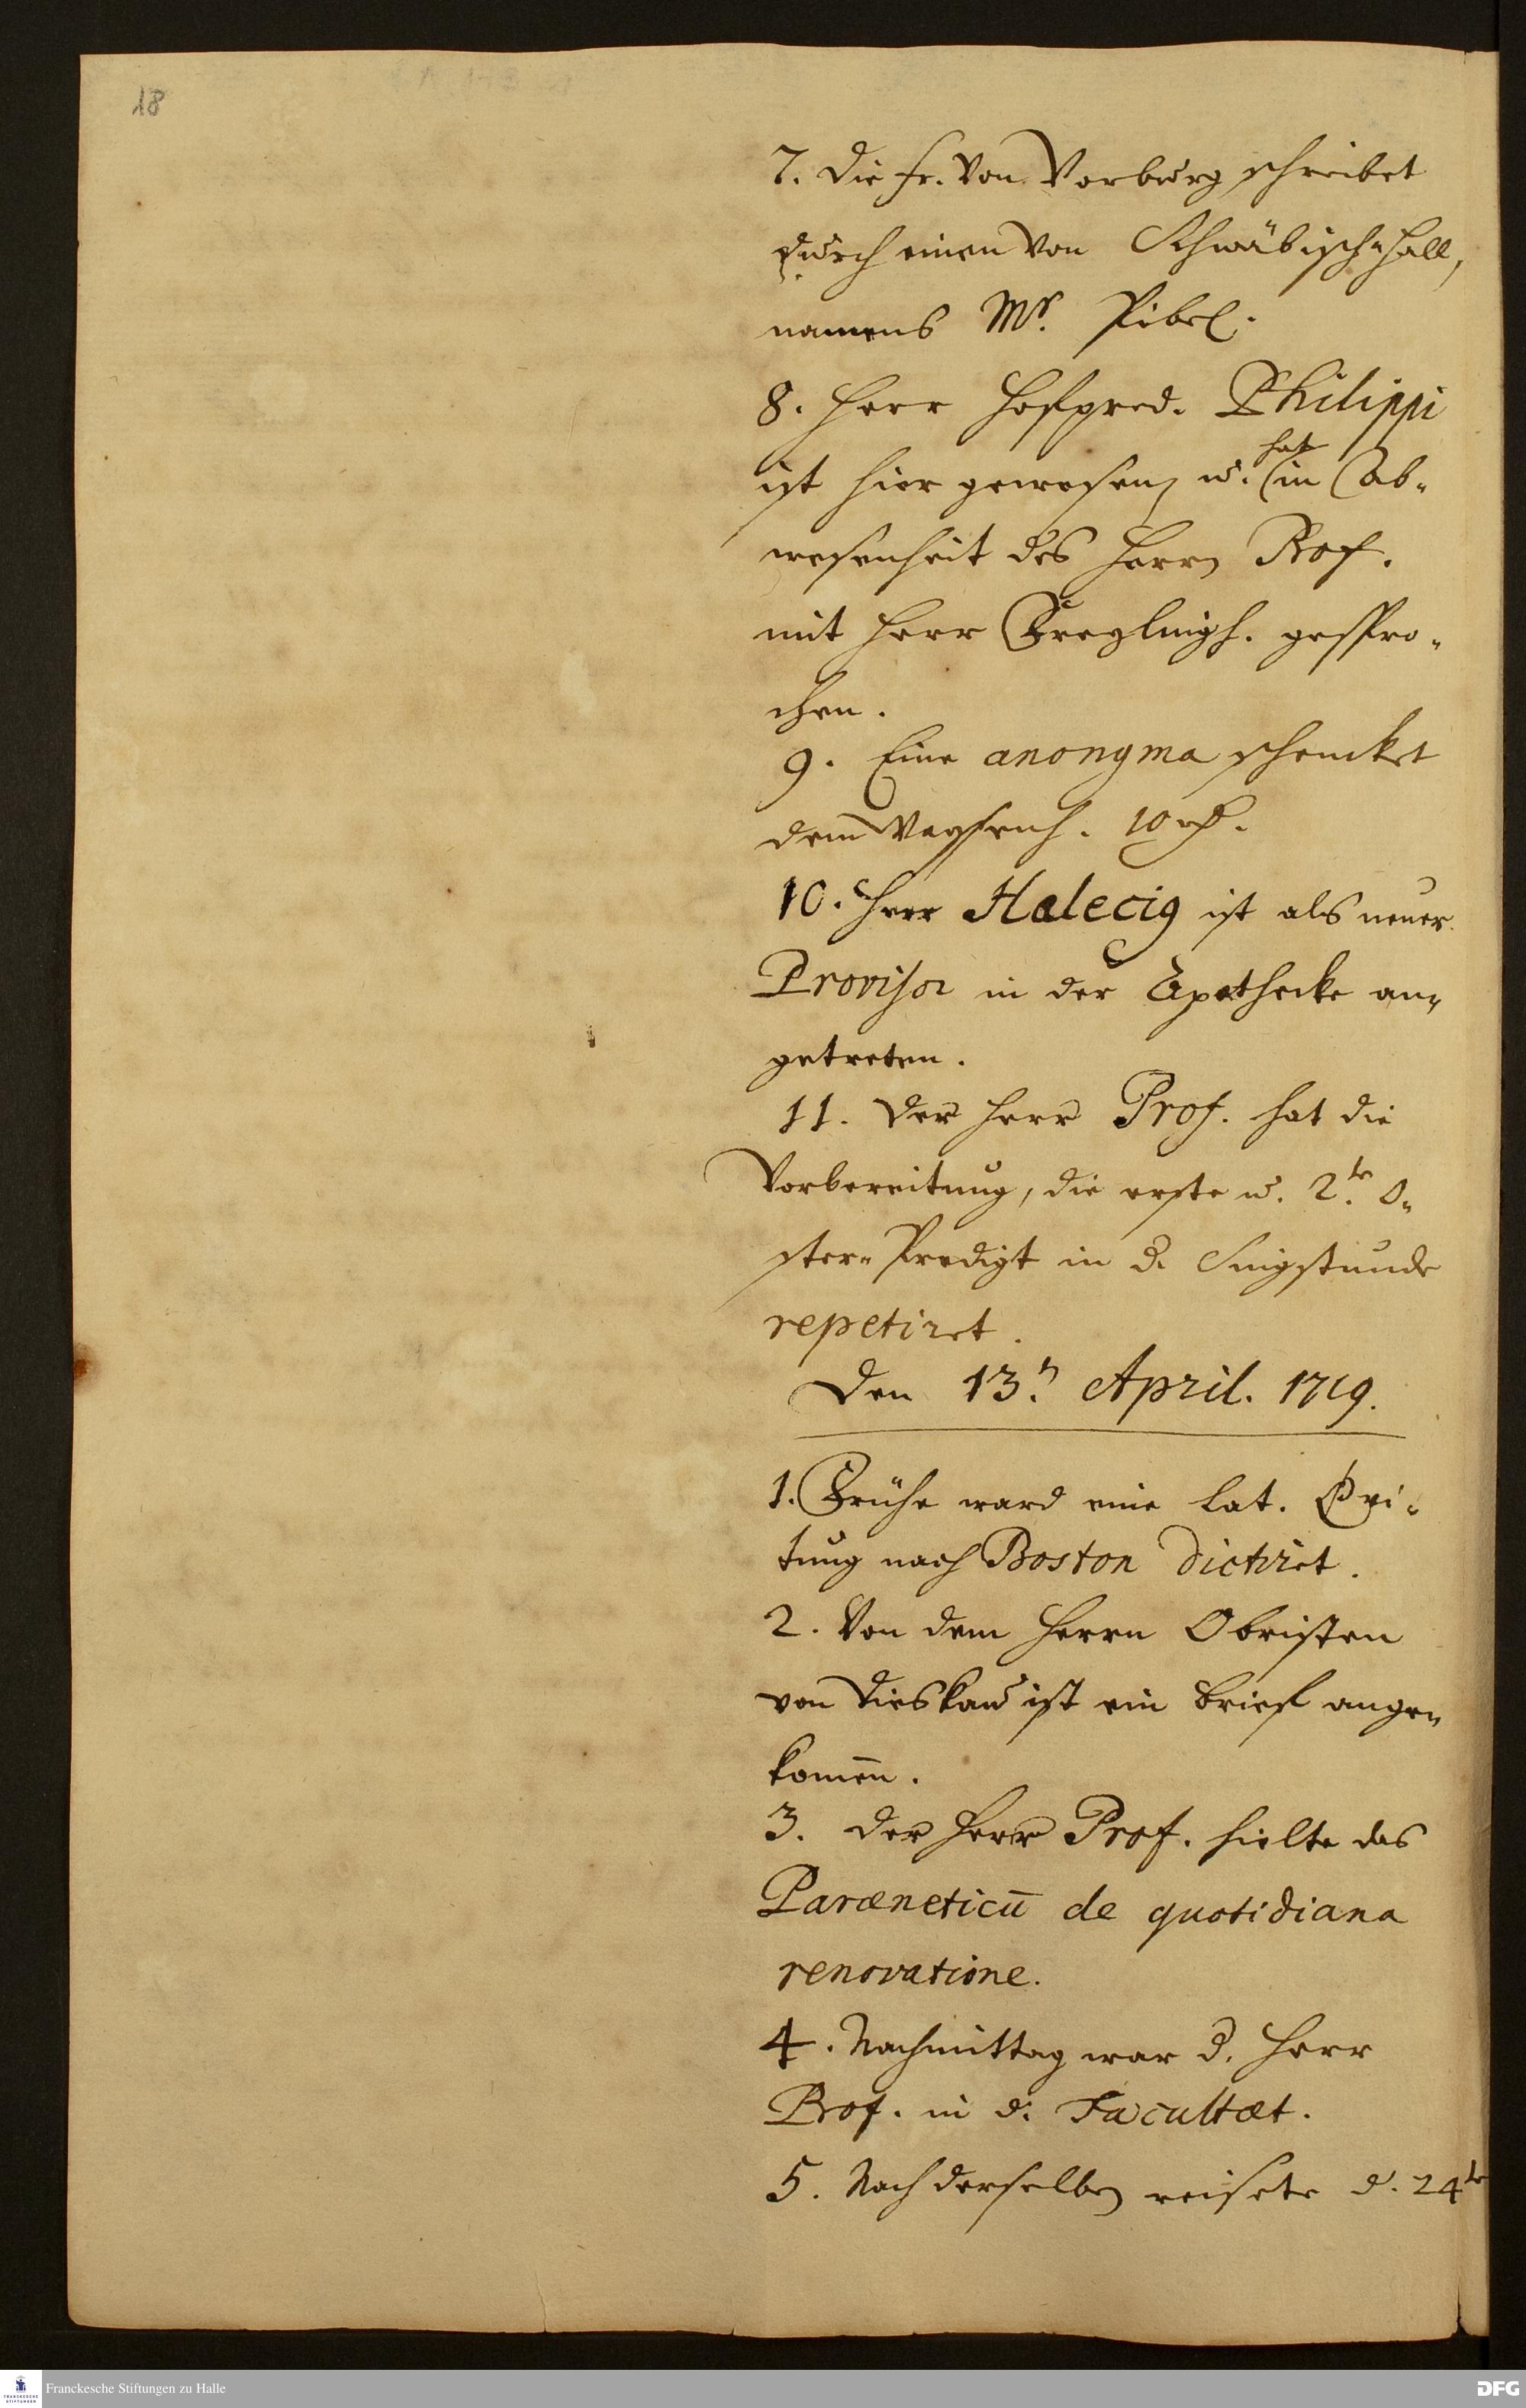 18
7. die Fr. von Vorburg schreibet
durch einen von Schwäbisch-Hall,
namens Mr. Pibel.
8. Herr Hofpred. Philippi
ist hier gewesen u. hat in Ab-
wesenheit des Herrn Prof.
mit Herr Freylingh. gespro-
chen.
9. Eine anonyma schencket
dem Waysenh. 10 rthl.
10. Herr Halecig ist als neuer
Provisor in der Apothecke an-
getreten.
11. Der Herr Prof. hat die
Vorbereitung, die erste u. 2te O-
ster-Predigt in d. Singstunde
repetiret.
Den 13n. April. 1719.
1. Frühe ward eine lat. Zei-
tung nach Boston dictiret.
2. Von dem Herrn Obristen
von Dieskau ist ein Brief ange-
kom̄en.
3. Der Herr Prof. hielte das
Paræneticū de quotidiana
renovatione.
4. Nachmittag war d. Herr
Prof. in d. Facultæt.
5. Nach derselben reisete d. 24te
Franckesche Stiftungen zu Halle
DFG